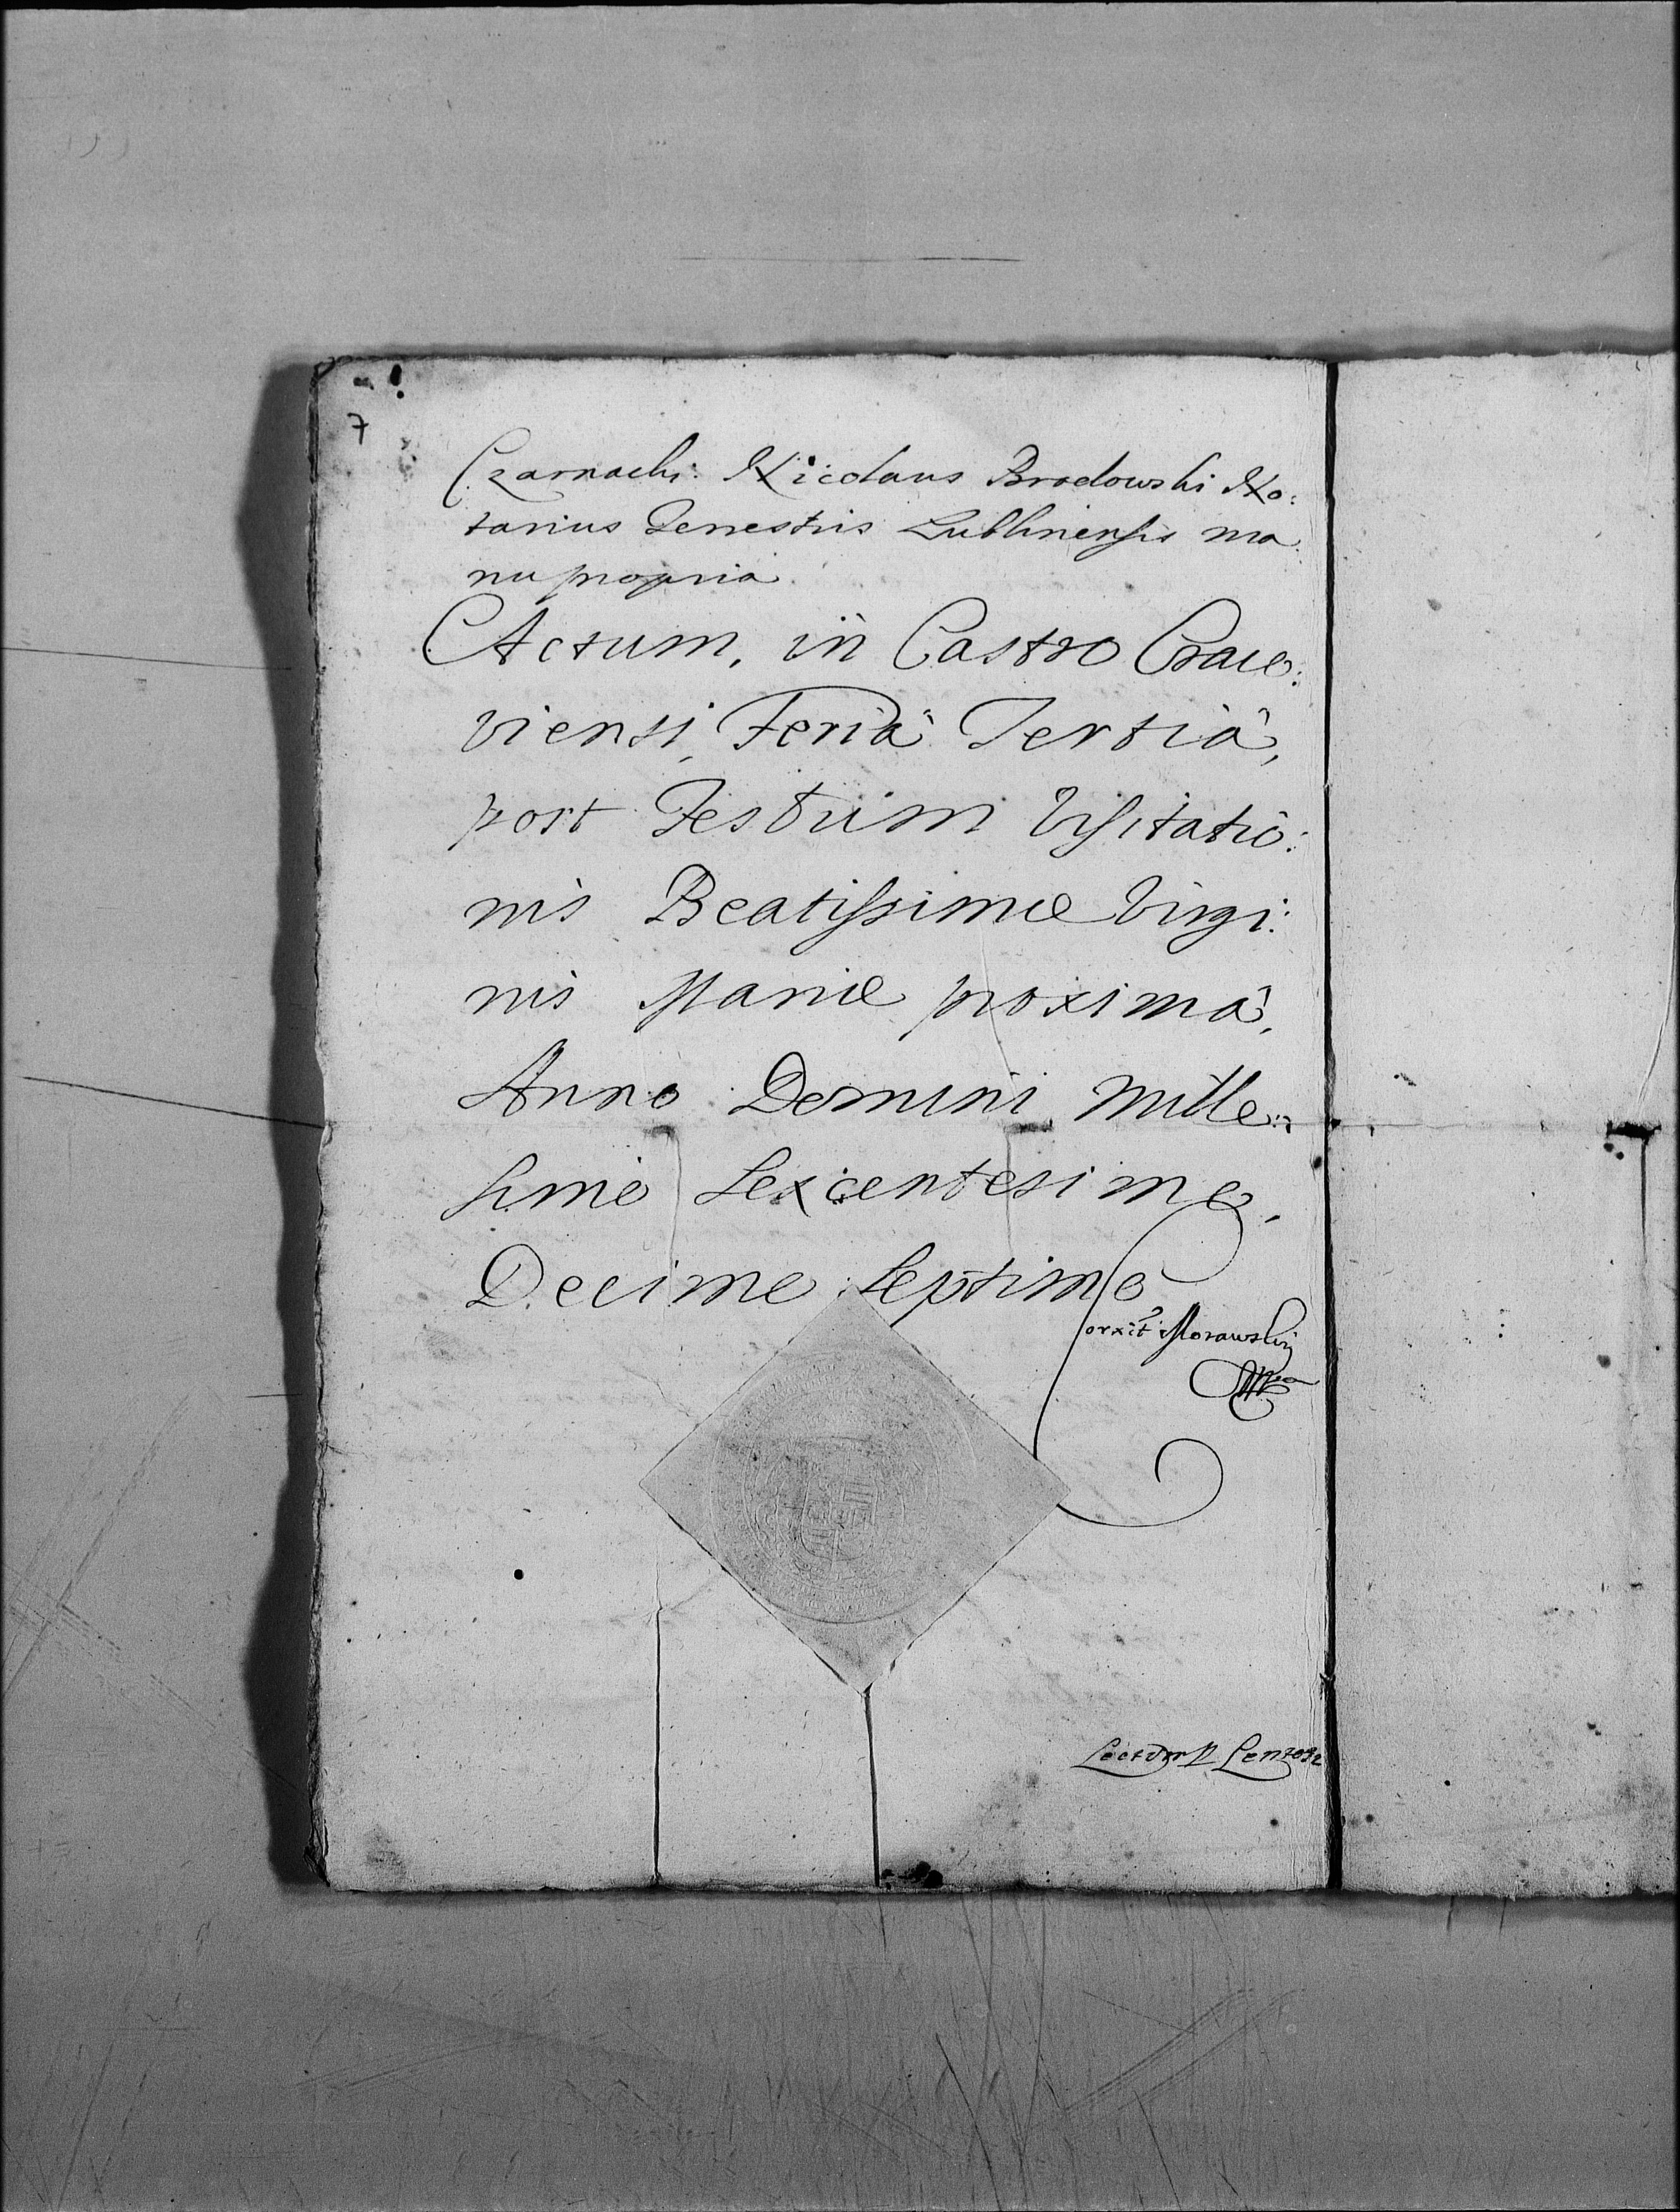 7
Czarnachi: Nicolaus Brodowski No:
tarius Terrestris Lublinensis ma
nu propria
Actum, in Castro Craco:
viensi, Feriâ Tertiâ,
post Festum Visitatio:
nis Beatissimæ Virgi:
nis Mariæ proximâ,
Anno Domini Mille:
simo Sexcentesimo,
Decimo Septimo
Morawskÿ
Lectum p